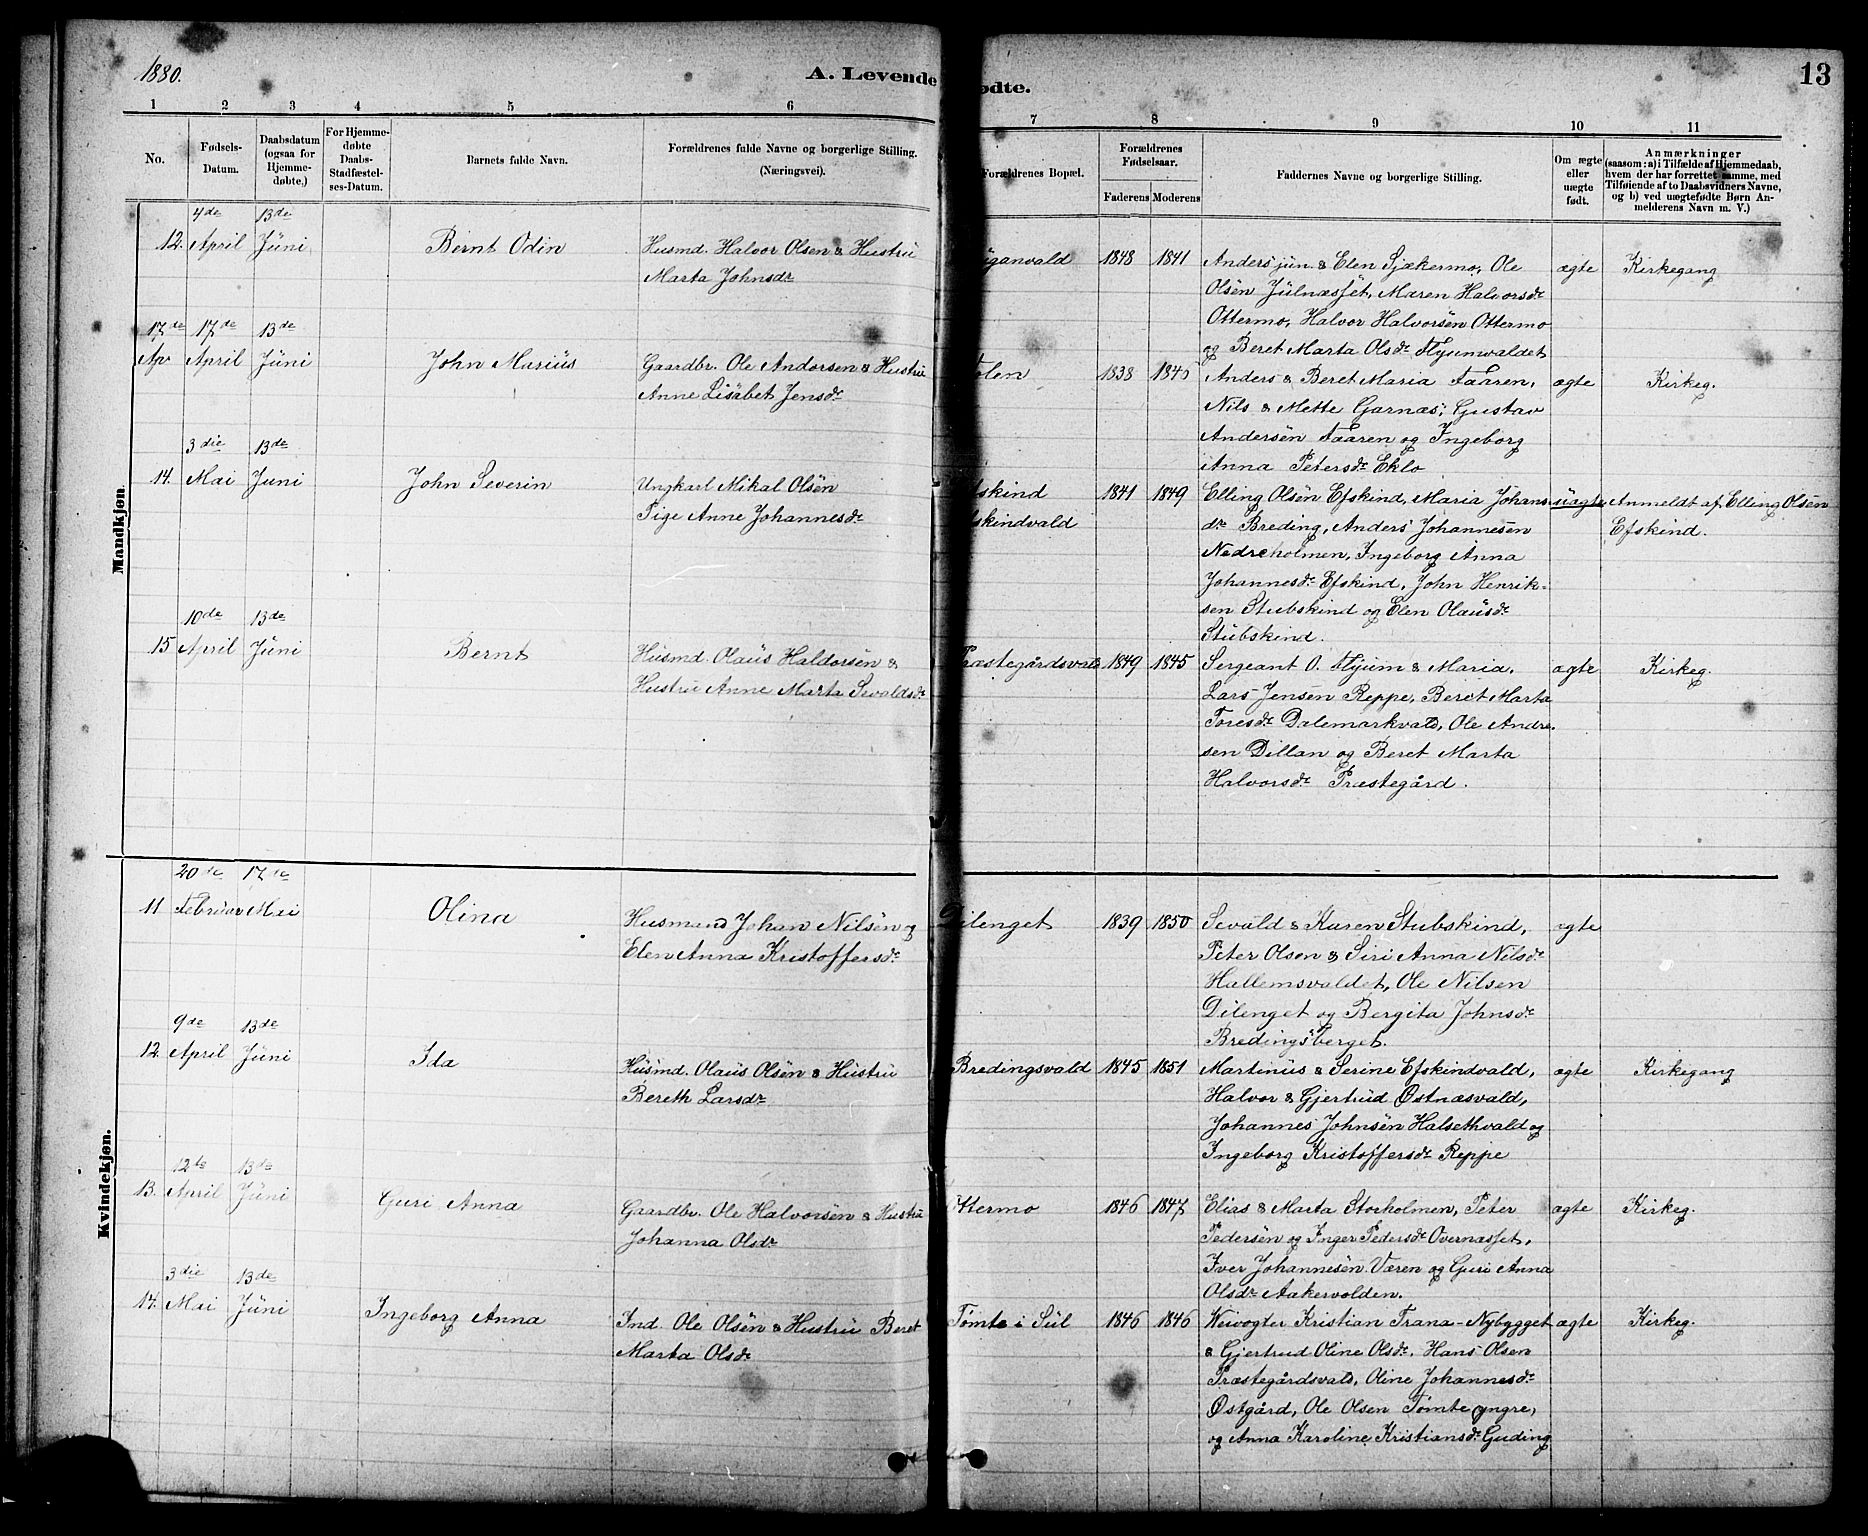 1880.
A. Levende
ødte.
13
1 2 3 4 5 6 7 8 9 10 11
No.
Fødsels-
Datum.
Daabsdatum
(ogsaa for
Hjemme-
døbte.)
For Hjemme-
døbte
Daabs-
Stadfæstel-
ses-Datum.
Barnets fulde Navn.
Forældrenes fulde Navne og borgerlige Stilling.
(Næringsvei).
Forældrenes Bopæl.
Forældrenes
Fødselsaar.
Faderens Moderens
Faddernes Navne og borgerlige Stilling.
Om ægte
eller
uægte
født.
Anmærkninger
(saasom: a) i Tilfælde af Hjemmedaab,
hvem der har forrettet samme, med
Tilføiende af to Daabsvidners Navne,
og b) ved uægtefødte Børn An-
melderens Navn m. V.)
Mandkjøn.
4de 13de
12. April Juni Bernt Odin Husmd. Halvor Olsen & Hustru
Marta Johnsdr
anvald 1848 1841 Anders jun. & Elen Sjækermo, Ole
Olsen Julnæsset, Maren Halvorsdr
Ottermo, Halvor Halvorsen Ottermo
og Beret Marta Olsdr Flyumvaldet
ægte Kirkegang
17de 17de 13de
Ap April Juni John Marius Gaardbr. Ole Andersen & Hustru
Anne Lisabet Jensdr
olen 1838 1840 Anders & Beret Maria Faaren,
Nils & Mette Garnæs, Gustav
Andersen Faaren og Ingeborg
Anna Petersdr Eklo
ægte Kirkeg.
3die 13de
14. Mai Juni John Severin Ungkarl Mikal Olsen
Pige Anne Johannesdr
fskind
fskindvald
1841 1849 Elling Olsen Efskind, Maria Johans
dr Breding, Anders Johannesen
Nedreholmen, Ingeborg Anna
Johannesdr Efskind, John Henrik-
sen Stubskind og Elen Olausdr
Stubskind.
uægte Anmeldt af Elling Olsen
Efskind.
10de 13de
15 April Juni Bernt Husmd. Olaus Haldorsen &
Hustru Anne Marta Sevaldsdr
Præstegårdsvald 1849 1845 Sergeant O. Flyum & Maria,
Lars Jensen Reppe, Beret Marta
Toresdr Dalemarkvald, Ole Andre-
sen Dillan og Beret Marta
Halvorsdr Præstegård.
ægte Kirkeg.
Kvindekjøn.
20de 17de
11 Februar Mai Olina Husmand Johan Nilsen og
Elen Anna Kristoffersdr
Dilenget 1839 1850 Sevald & Karen Stubskind,
Peter Olsen & Siri Anna Nilsdr
Hallemsvaldet, Ole Nilsen
Dilenget og Bergita Johnsdr
Bredingsberget.
ægte
9de 13de
12. April Juni Ida Husmd. Olaus Olsen & Hustru
Bereth Larsdr
Bredingsvald 1845 1851 Martinus & Serine Efskindvald,
Halvor & Gjertrud Østnæsvald,
Johannes Johnsen Halsethvald og
Ingeborg Kristoffersdr Reppe
ægte Kirkegang
12te 13de
13. April Juni Guri Anna Gaardbr. Ole Halvorsen & Hustru
Johanna Olsdr
ttermo 1846 1847 Elias & Marta Storholmen, Peter
Pedersen og Inger Pedersdr Overnæsset,
Iver Johannesen Væren og Guri Anna
Olsdr Aakervolden.
ægte Kirkeg.
3die 13de
14. Mai Juni Ingeborg Anna Ind. Ole Olsen & Hustru Beret
Marta Olsdr
Tømte i Sul 1846 1846 Veivogter Kristian Trana-Nybygget
& Gjertrud Oline Olsdr, Hans Olsen
Præstegårdsvald, Oline Johannesdr
Østgård, Ole Olsen Tømte yngre,
og Anna Karoline Kristiansdr Guding
ægte Kirkeg.